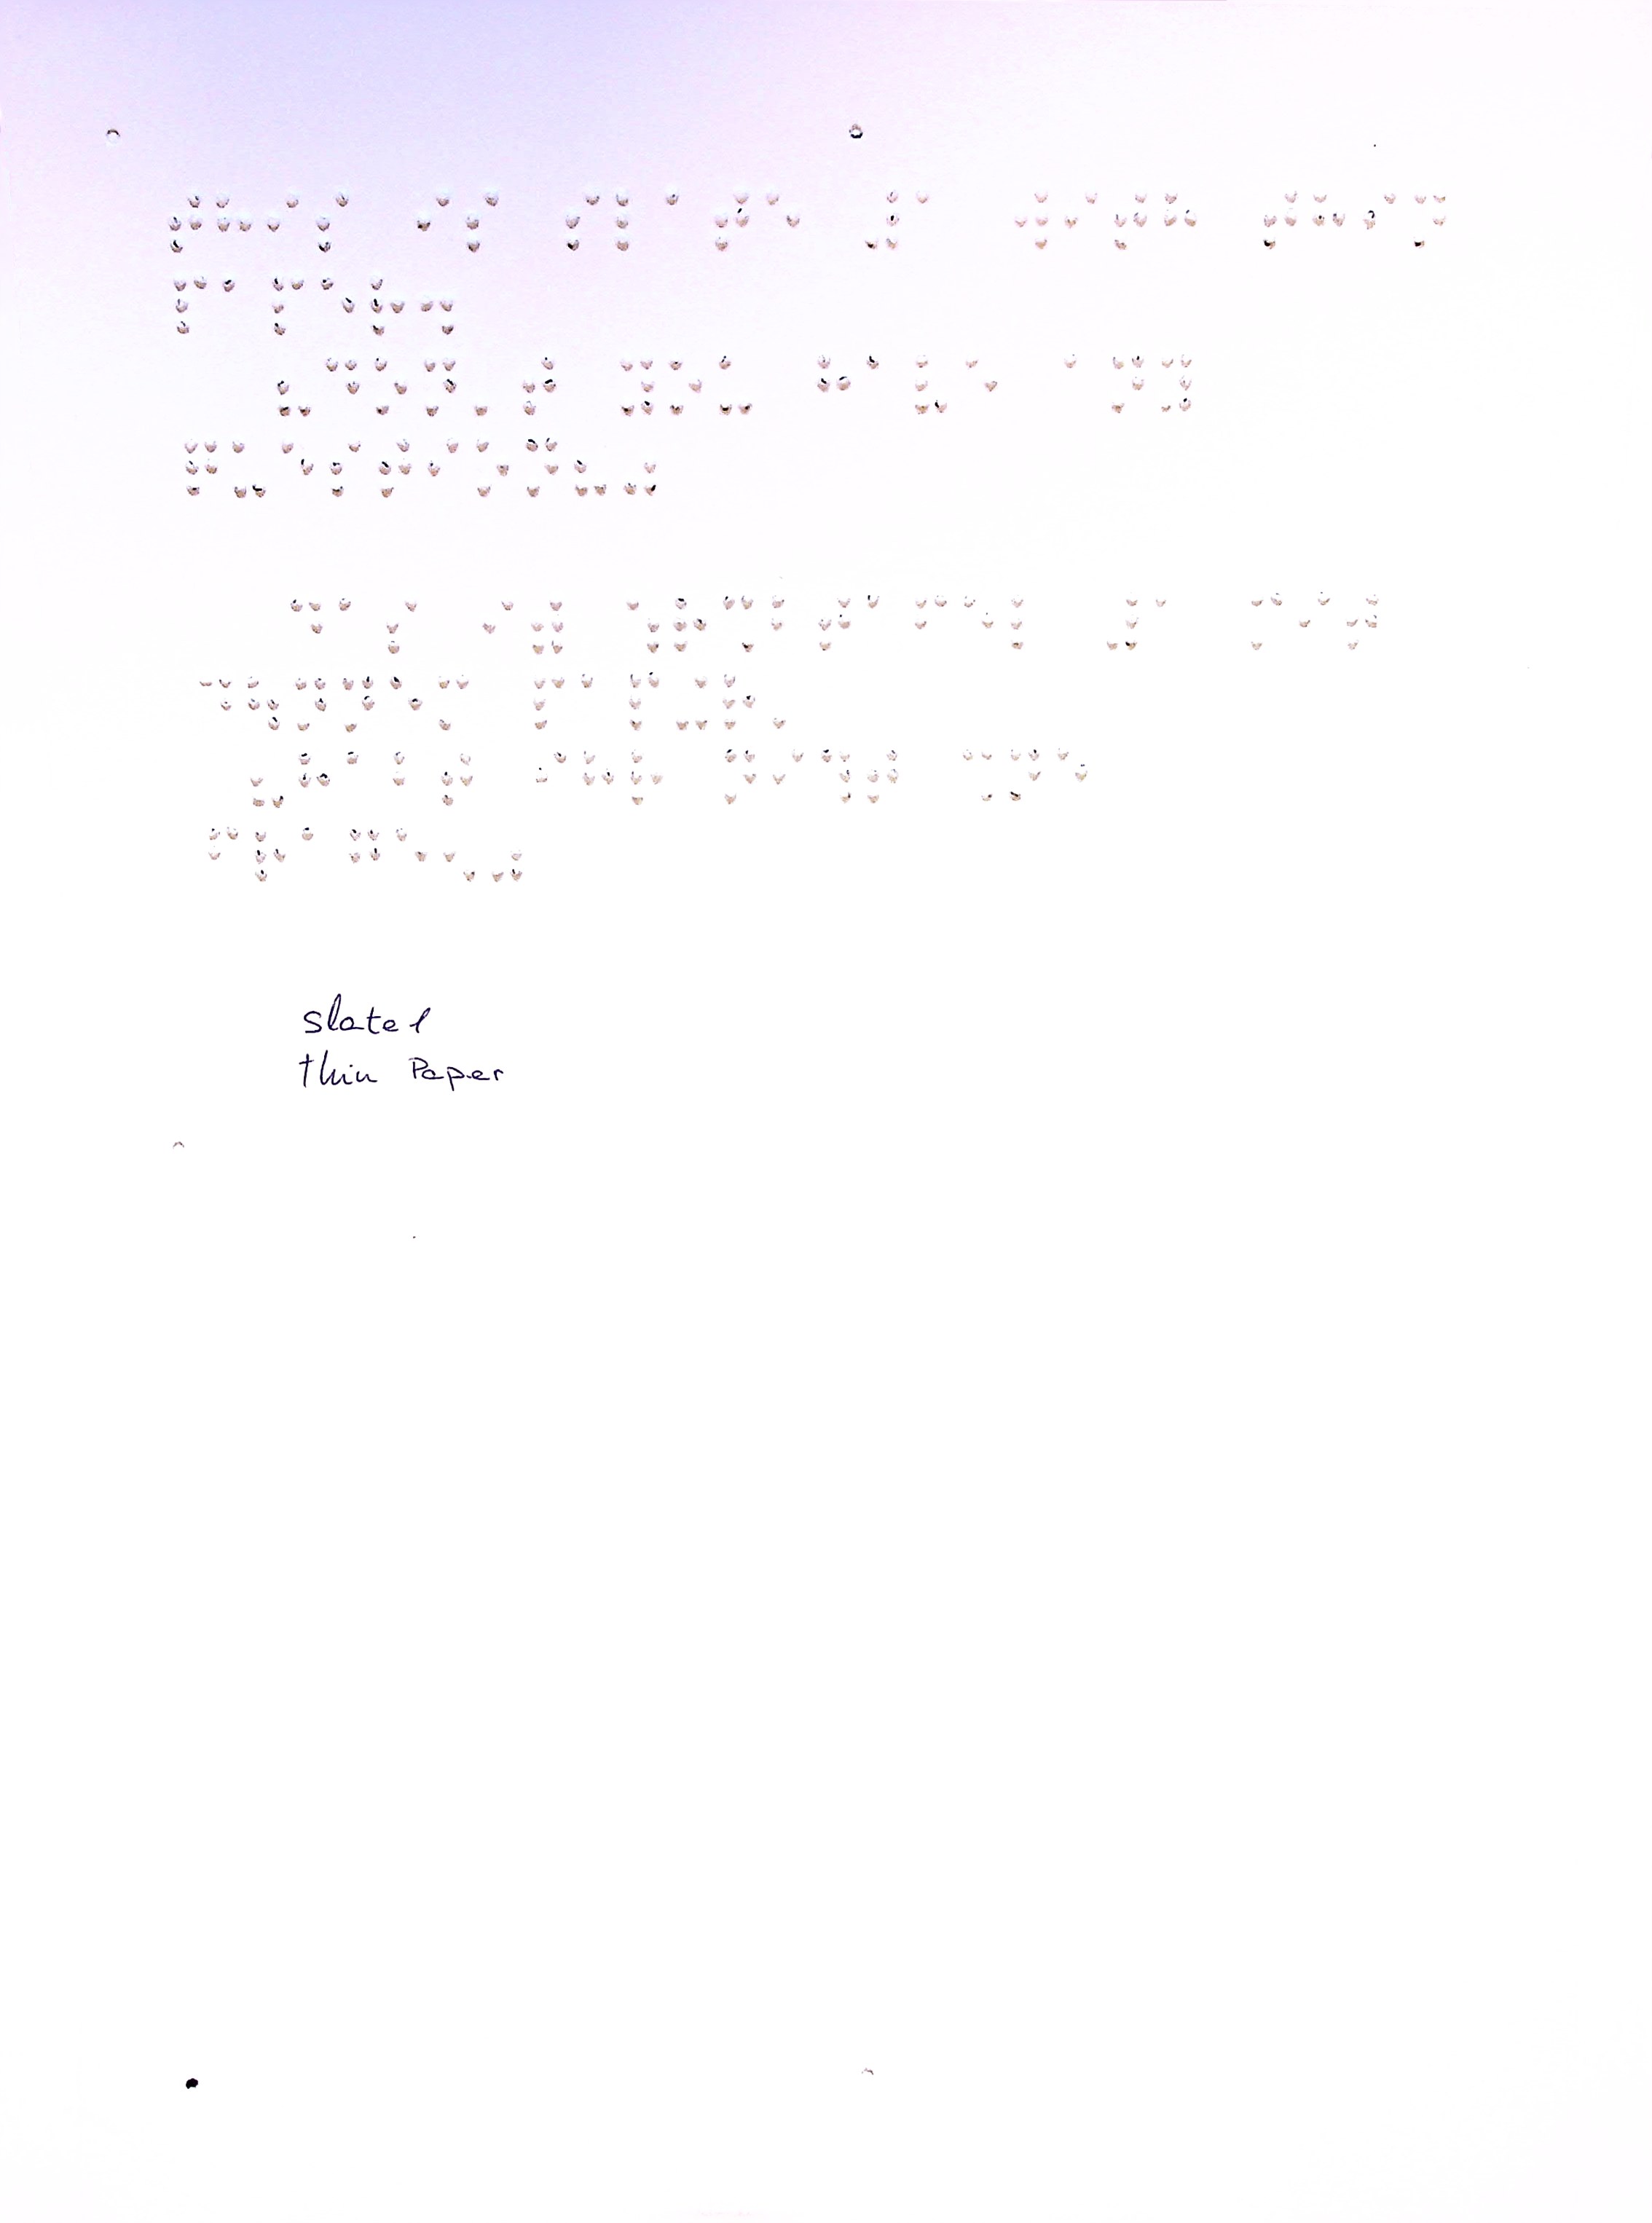 ⠞⠓⠊⠎ ⠊⠎ ⠎⠇⠁⠞⠑ ⠼⠁ ⠺⠊⠞⠓ ⠞⠓⠊⠝
⠏⠁⠏⠑⠗⠲
⠦⠙⠕⠝⠄⠞ ⠽⠕⠥ ⠓⠁⠧⠑ ⠁⠝⠽
⠟⠥⠑⠎⠞⠊⠕⠝⠦⠴
⠙⠁⠎ ⠊⠾ ⠱⠗⠩⠃⠞⠁⠋⠑⠇ ⠼⠁ ⠍⠊⠞
⠙⠳⠝⠝⠑⠍ ⠏⠁⠏⠬⠗⠄
⠦⠓⠁⠃⠞ ⠊⠓⠗ ⠝⠊⠹⠞ ⠩⠝⠑
⠋⠗⠁⠛⠑⠢⠴
slate 1
thin Paper